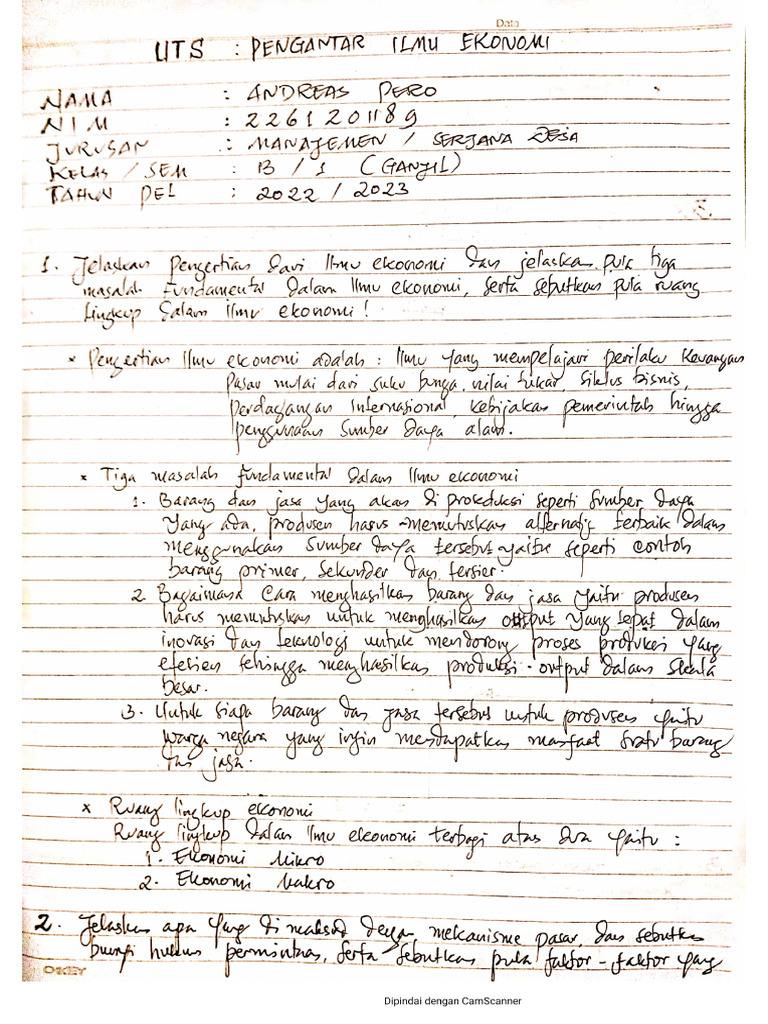 Date
UTS : PENGANTAR ILMU EKONOMI
NAMA : ANDREAS PERO
NIM : 2261201189
JURUSAN : MANAJEMEN / SERJANA DESA
KELAS / SEM : B / 1 (GANJIL)
TAHUN PEL : 2022 / 2023
1. Jelaskan Pengertian dari Ilmu ekonomi dan jelaskan pula tiga
masalah Fundamental dalam Ilmu ekonomi, serta sebutkan pula ruang
Lingkup dalam ilmu ekonomi!
* Pengertian Ilmu ekonomi adalah : Ilmu yang mempelajari perilaku Keuangan
Pasar mulai dari suku bunga, nilai tukar, Siklus bisnis,
perdagangan Internasional, kebijakan pemerintah hingga
penggunaan Sumber daya alam.
* Tiga masalah fundamental dalam Ilmu ekonomi
1. Barang dan jasa yang akan di proseduksi seperti Sumber daya
yang ada, produsen harus memutuskan alternatif terbaik dalam
menggunakan sumber daya tersebut yaitu seperti contoh
barang primer, Sekunder dan tersier.
2. Bagaimana Cara menghasilkan barang dan jasa yaitu produsen
harus memutuskan untuk menghasilkan output yang tepat dalam
inovasi dan teknologi untuk mendorong proses produksi yang
efesien sehingga menghasilkan produksi output dalam skala
besar.
3. Untuk siapa barang dan jasa tersebut untuk produsen yaitu
warga negara yang ingin mendapatkan manfaat suatu barang
dan jasa.
* Ruang lingkup ekonomi
Ruang lingkup dalam ilmu ekonomi terbagi atas dua yaitu :
1. Ekonomi Mikro
2. Ekonomi Makro
2. Jelaskan apa yang di maksud dengan mekanisme pasar, dan sebutkan
bunyi hukum permintaan, serta sebutkan pula faktor-faktor yang
OKEY
Dipindai dengan CamScanner